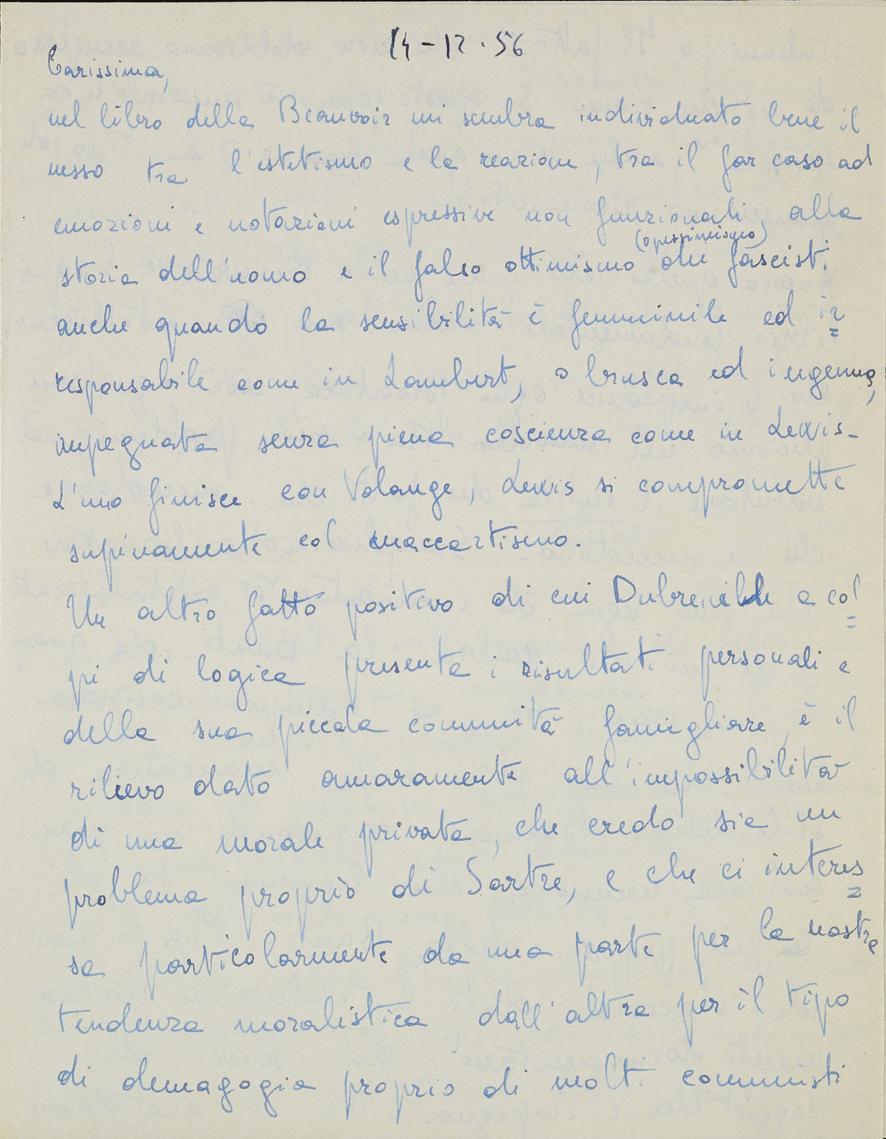 14-12-56
Carissima,
nel libro della Beauvoir mi sembra individuato bene il
nesso tra l'estetismo e la reazione, tra il far caso ad
emozioni e notazioni espressive non funzionali alla
(o pessimismo)
storia dell'uomo e il falso ottimismo dei fascisti.
anche quando la sensibilità è femminile ed ir=
responsabile come in Lambert, o brusca ed ingenua,
impegnata senza piena coscienza come in Lewis-
L'uno finisce con Volange, Lewis si compromette
supinamente col maccartismo.
Un altro fatto positivo di cui a col=
pi di logica presenta i risultati personali e
della sua piccola comunità famigliare, è il
rilievo dato amaramente all'impossibilità
di una morale privata, che credo sia un
problema proprio di Sartre, e che ci interes=
sa particolarmente da una parte per la nostra
tendenza moralistica dall'altra per il tipo
di demagogia proprio di molti comunisti